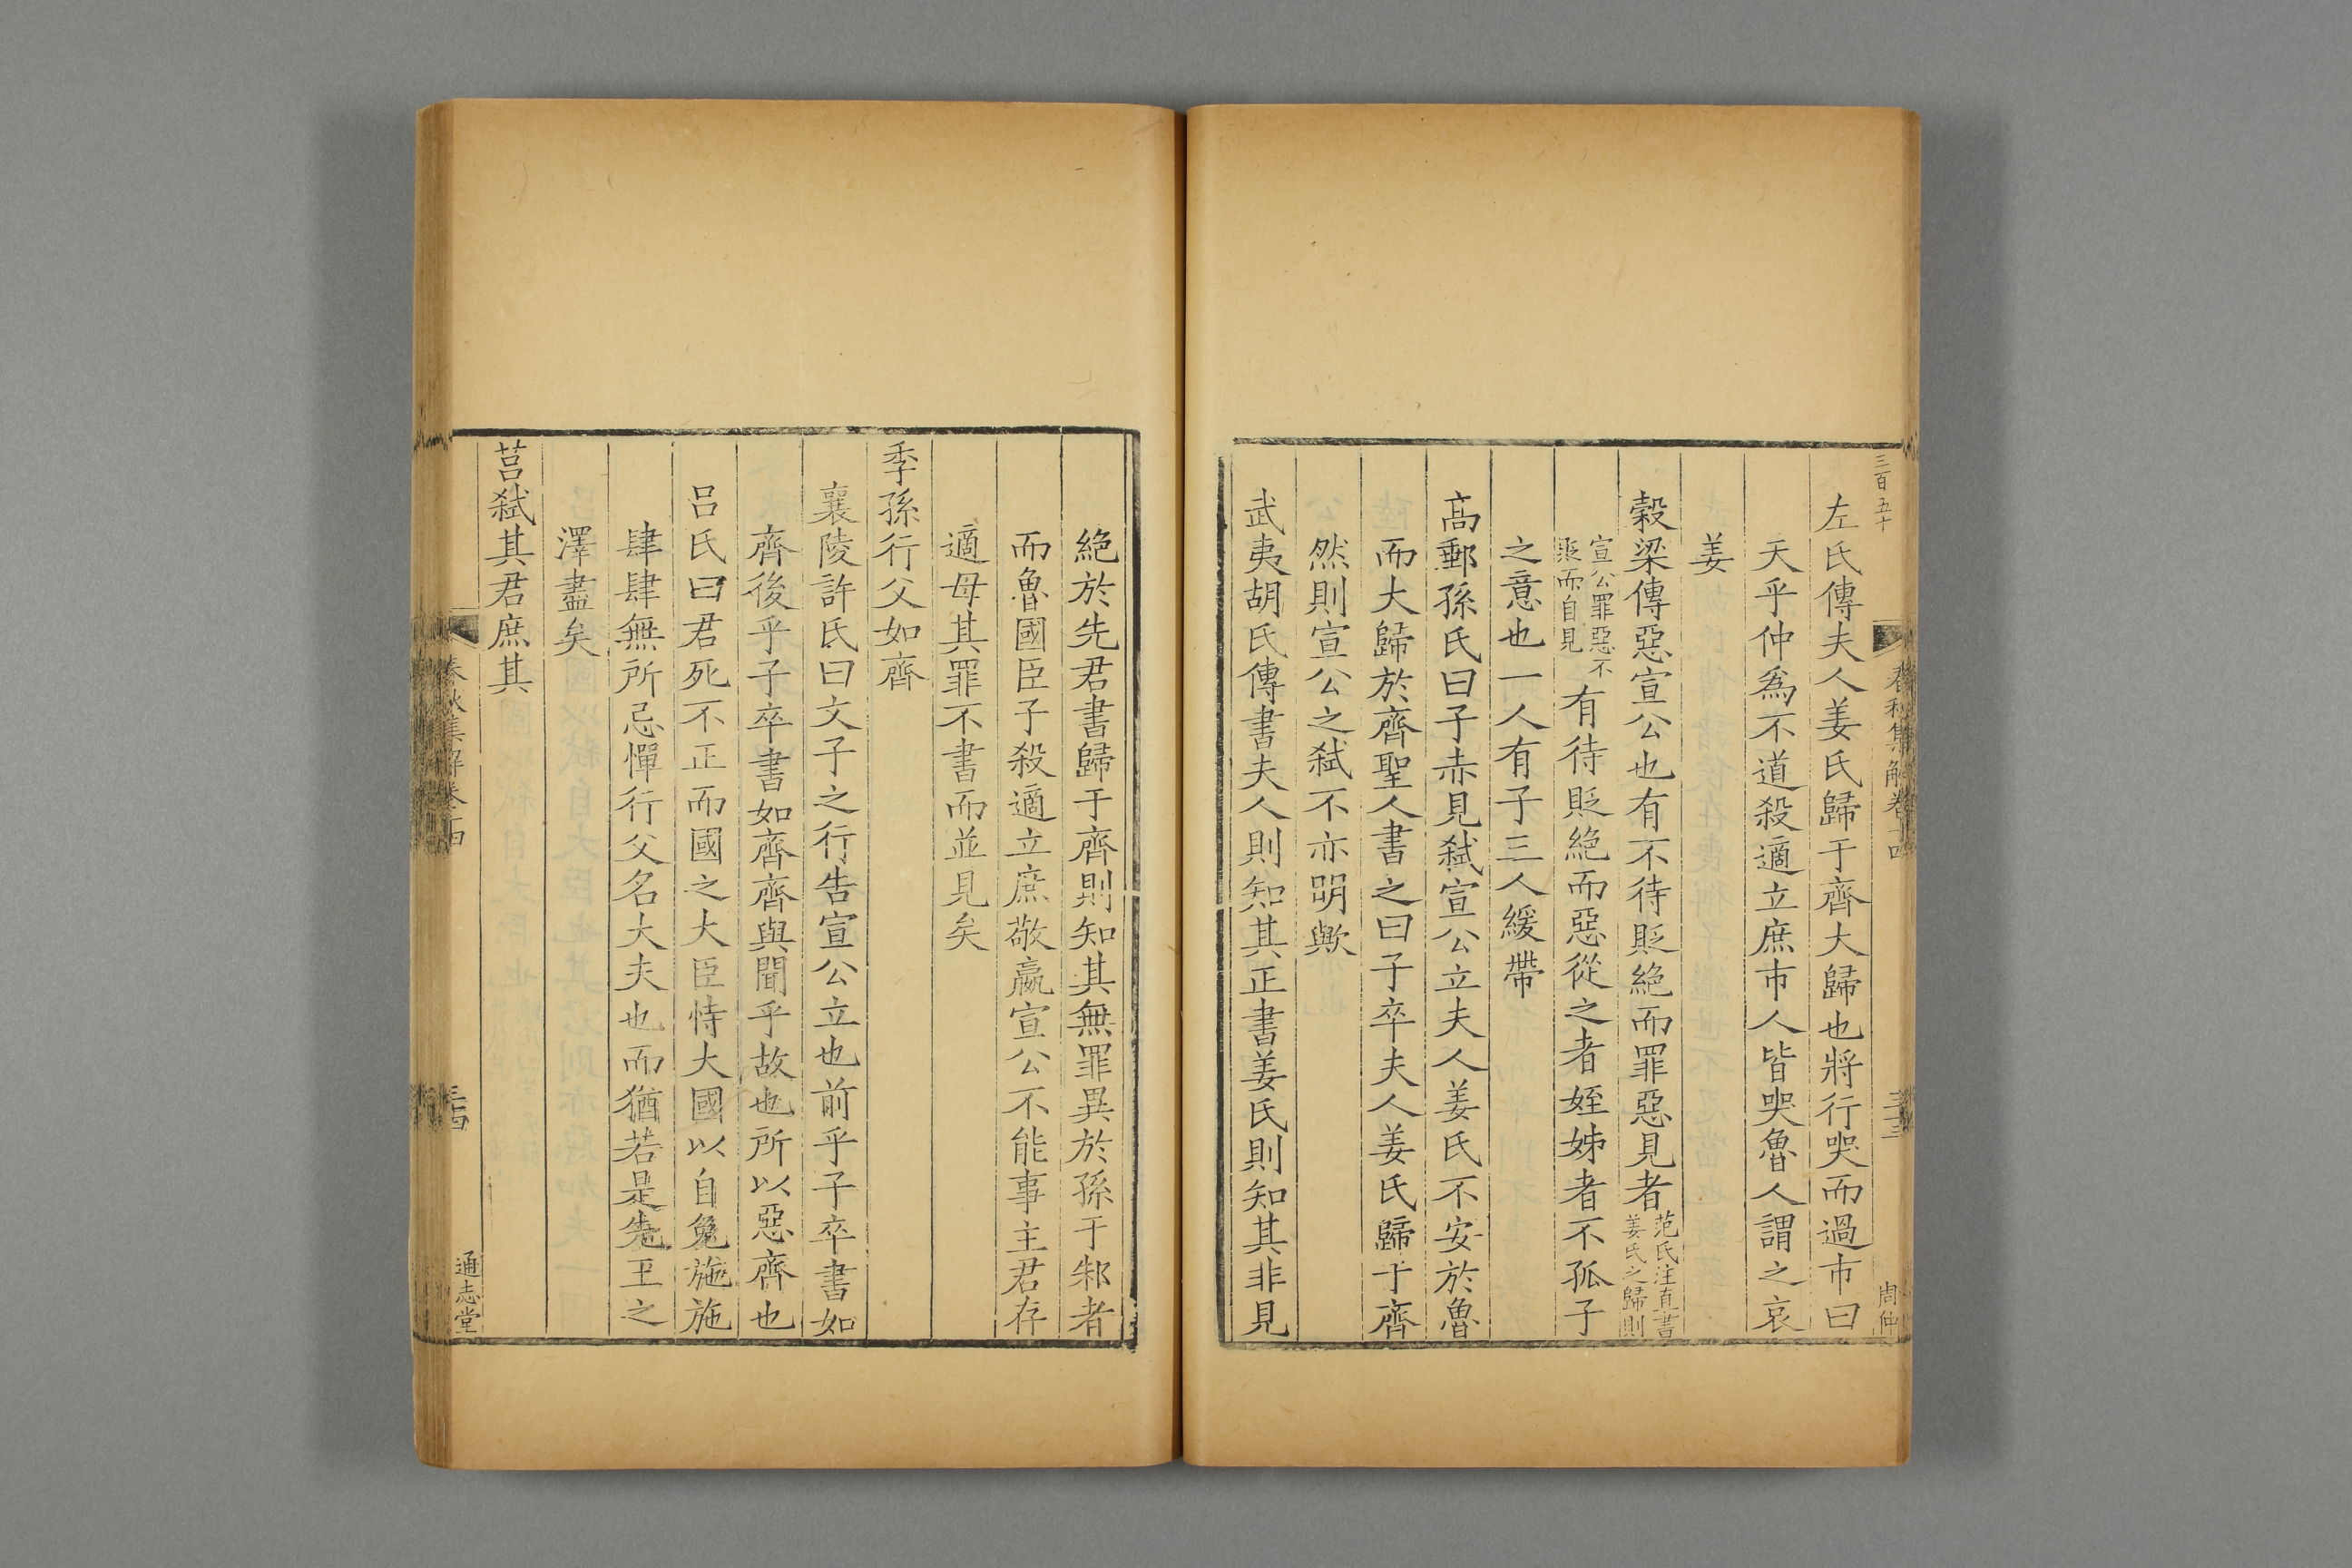 三百五十
春秋集解卷十四
三十三
周仲
左氏傳夫人姜氏歸于齊大歸也將行哭而過市曰
天乎仲爲不道殺適立庶市人皆哭魯人謂之哀
姜
穀梁傳惡宣公也有不待貶絕而罪惡見者范氏注直書姜氏之歸則
宣公罪惡不貶而自見有待貶絕而惡從之者姪娣者不孤子
之意也一人有子三人緩帶
高郵孫氏曰子赤見弒宣公立夫人姜氏不安於魯
而大歸於齊聖人書之曰子卒夫人姜氏歸于齊
然則宣公之弒不亦明歟
武夷胡氏傳書夫人則知其正書姜氏則知其非見
絕於先君書歸于齊則知其無罪異於孫于邾者
而魯國臣子殺適立庶敬嬴宣公不能事主君存
適母其罪不書而並見矣
季孫行父如齊
襄陵許氏曰文子之行告宣公立也前乎子卒書如
齊後乎子卒書如齊齊與聞乎故也所以惡齊也
呂氏曰君死不正而國之大臣恃大國以自免施施
肆肆無所忌憚行父名大夫也而猶若是先王之
澤盡矣
莒弒其君庶其
春秋集解卷十四
三十四
通志堂